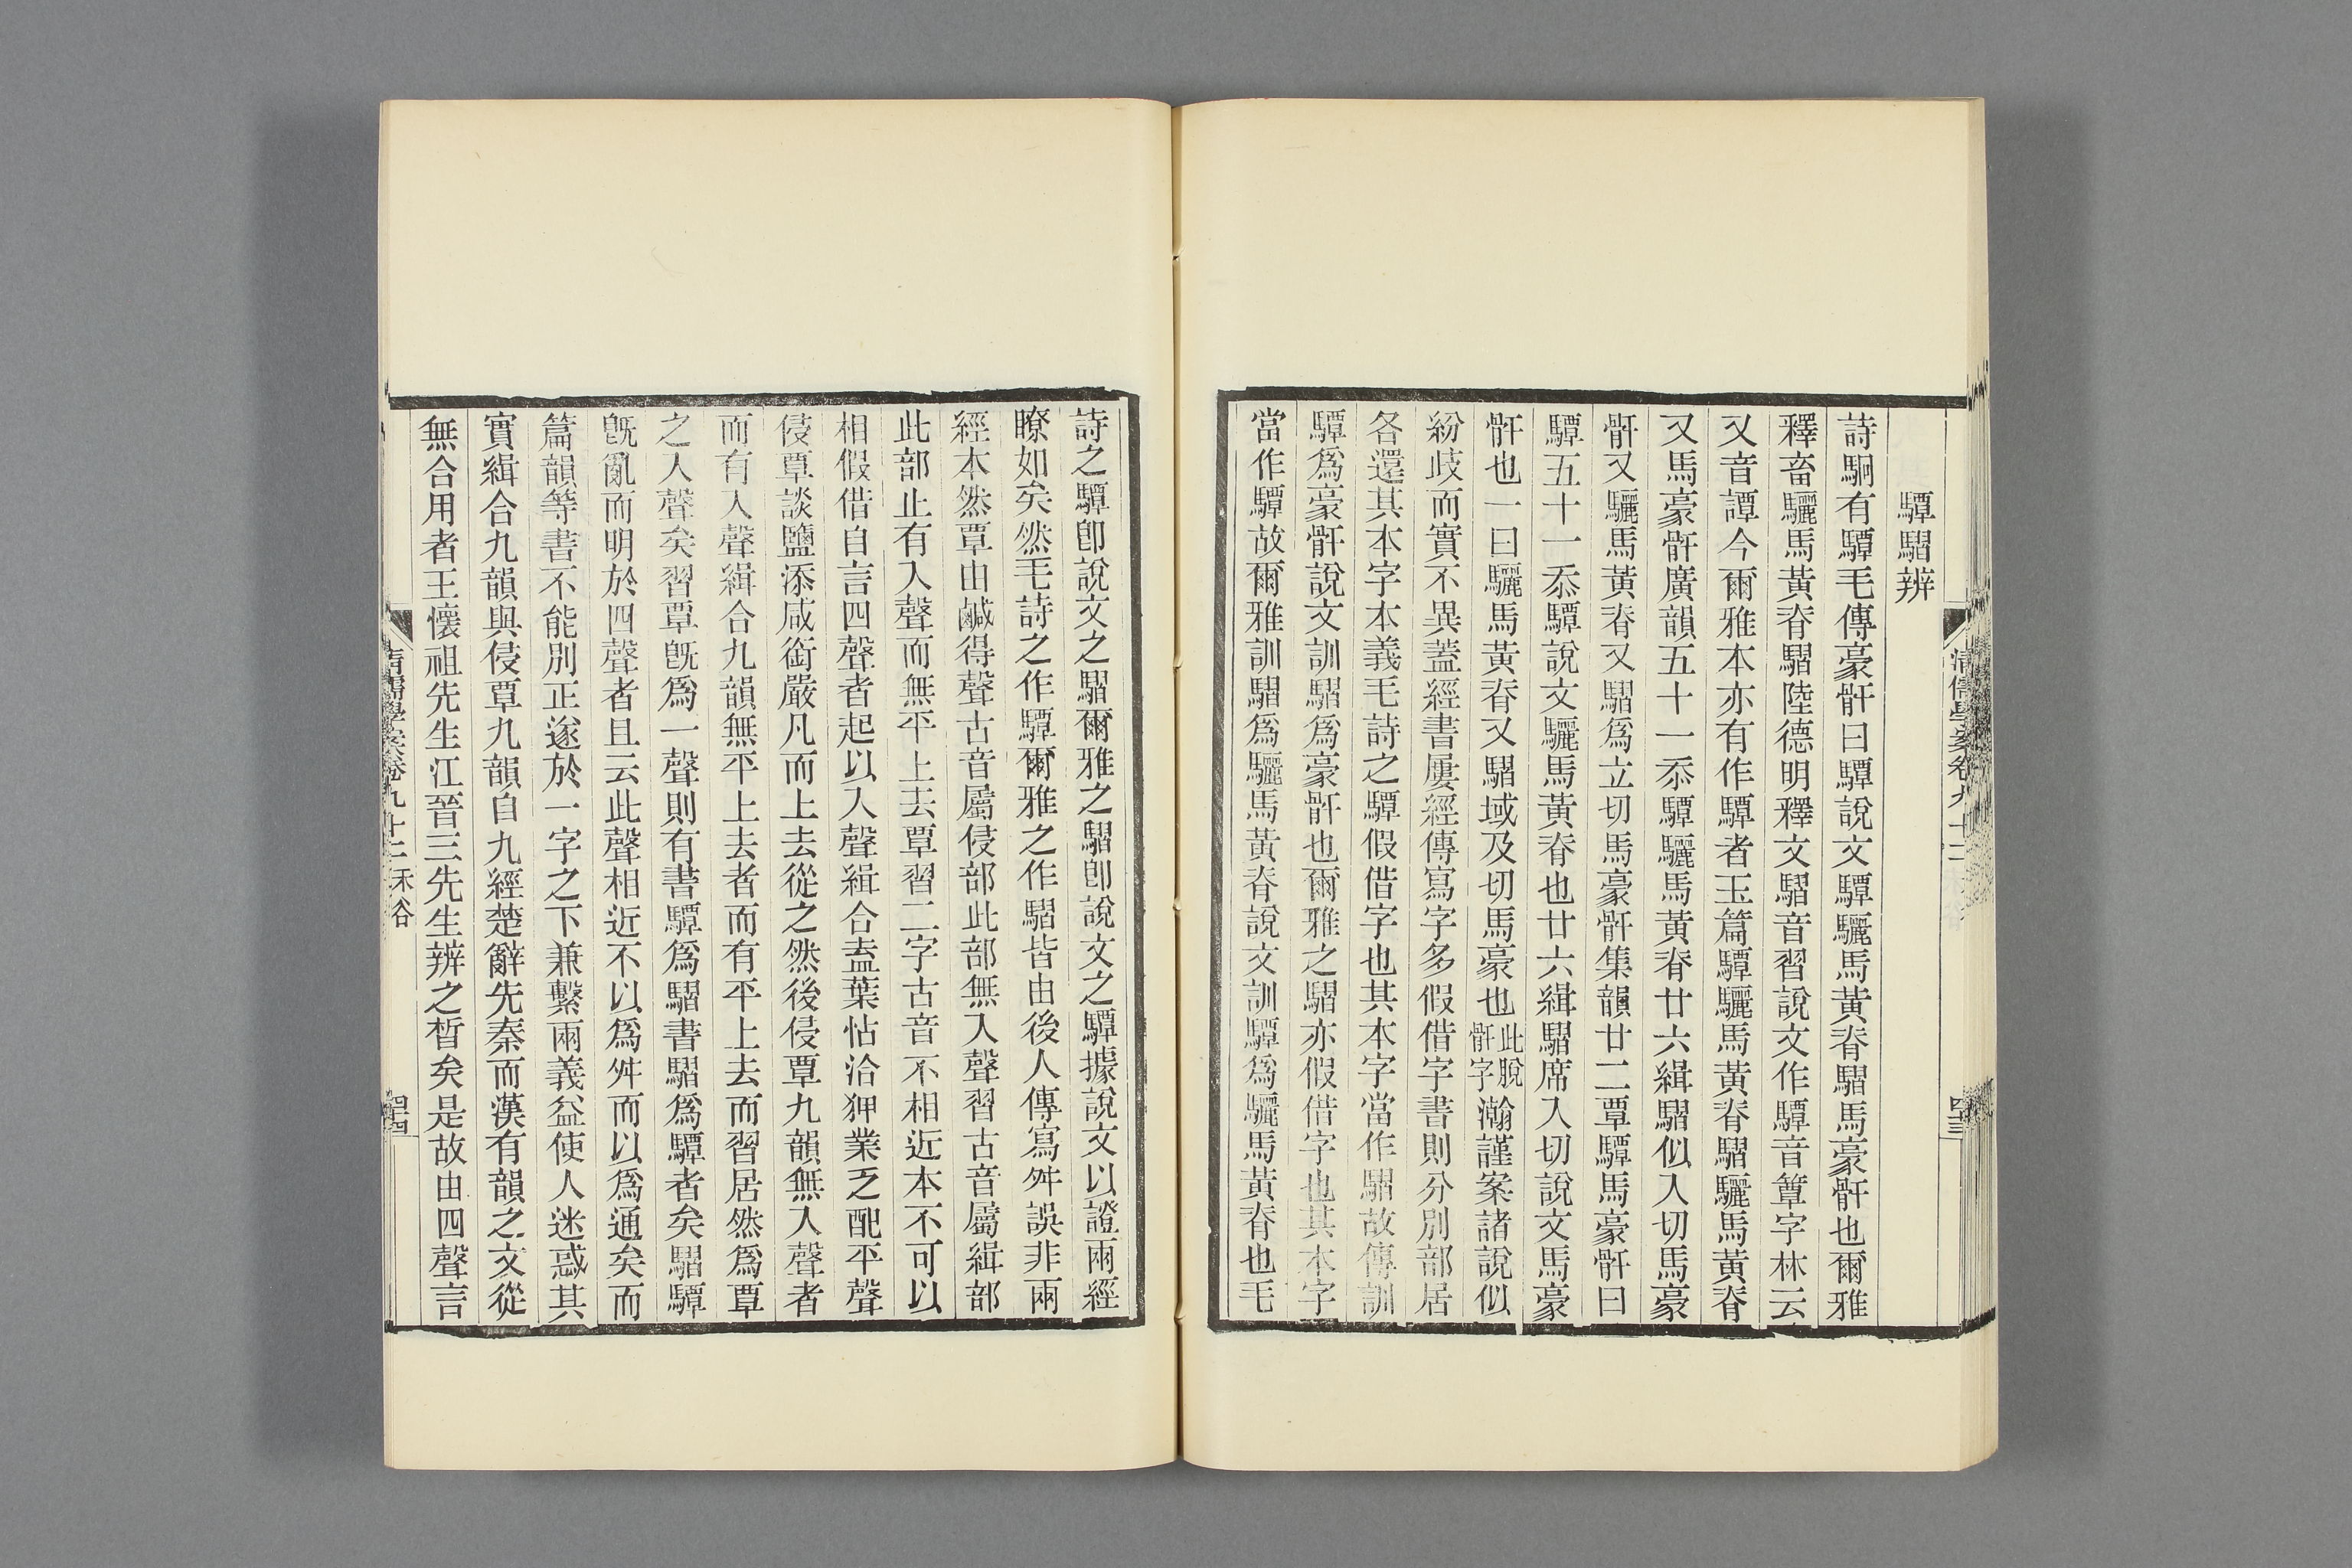 驔騽辨
詩駉有驔毛傳豪骭曰驔說文驔驪馬黃脊騽馬豪骭也爾雅
釋畜驪馬黃脊騽陸德明釋文騽音習說文作驔音簟字林云
又音譚今爾雅本亦有作驔者玉篇驔驪馬黃脊騽驪馬黃脊
又馬豪骭廣韻五十一忝驔驪馬黃脊廿六緝騽似入切馬豪
骭又驪馬黃脊又騽爲立切馬豪骭集韻廿二覃驔馬豪骭曰
驔五十一忝驔說文驪馬黃脊也廿六緝騽席入切說文馬豪
骭也一曰驪馬黃脊又騽域及切馬豪也此脫骭字瀚謹案諸說似
紛歧而實不異蓋經書屢經傳寫字多假借字書則分別部居
各還其本字本義毛詩之驔假借字也其本字當作騽故傳訓
驔爲豪骭說文訓騽爲豪骭也爾雅之騽亦假借字也其本字
當作驔故爾雅訓騽爲驪馬黃脊說文訓驔爲驪馬黃脊也毛
清儒學案卷九十二
四三
詩之驔卽說文之騽爾雅之騽卽說文之驔據說文以證兩經
瞭如矣然毛詩之作驔爾雅之作騽皆由後人傳寫舛誤非兩
經本然覃由鹹得聲古音屬侵部此部無入聲習古音屬緝部
此部止有入聲而無平上去覃習二字古音不相近本不可以
相假借自言四聲者起以入聲緝合盍葉怗洽狎業乏配平聲
侵覃談鹽添咸銜嚴凡而上去從之然後侵覃九韻無入聲者
而有入聲緝合九韻無平上去者而有平上去而習居然爲覃
之入聲矣習覃旣爲一聲則有書驔爲騽書騽爲驔者矣騽驔
旣亂而明於四聲者且云此聲相近不以爲舛而以爲通矣而
篇韻等書不能別正遂於一字之下兼繫兩義益使人迷惑其
實緝合九韻與侵覃九韻自九經楚辭先秦而漢有韻之文從
無合用者王懷祖先生江晉三先生辨之晳矣是故由四聲言
清儒學案卷九十二禾谷
四四